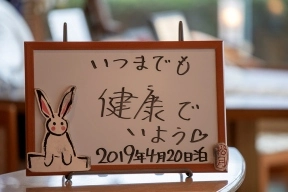 いつまでも
健康で
いよう♡
2019年4月20日泊